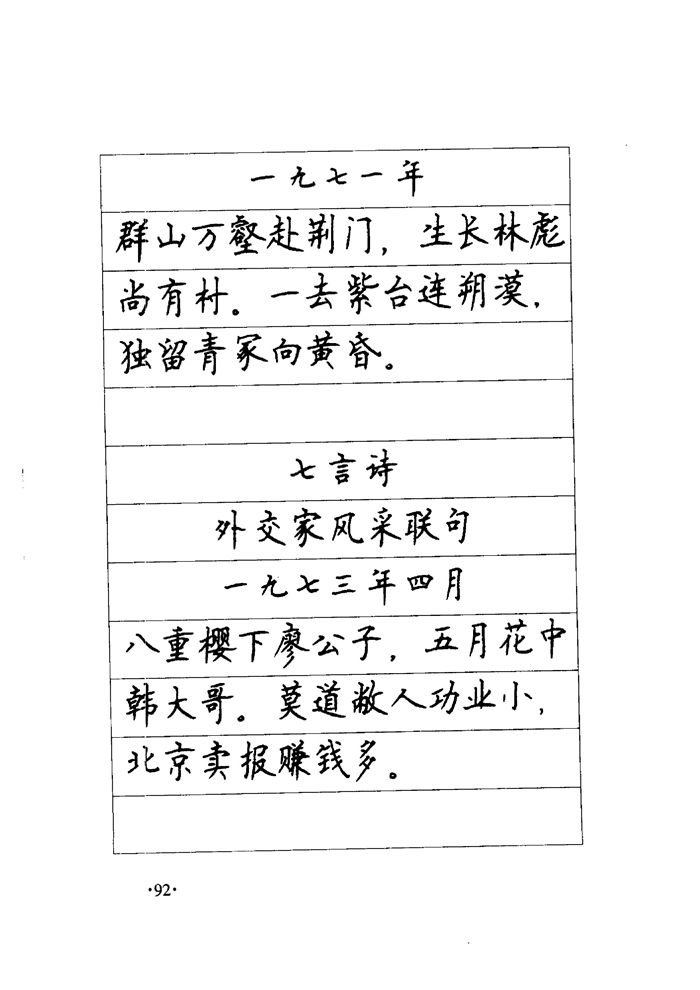 一九七一年
群山万壑赴荆门，生长林彪
尚有村。一去紫台连朔漠，
独留青冢向黄昏。
七言诗
外交家风采联句
一九七三年四月
八重樱下廖公子，五月花中
韩大哥。莫道敝人功业小，
北京卖报赚钱多。
·92·